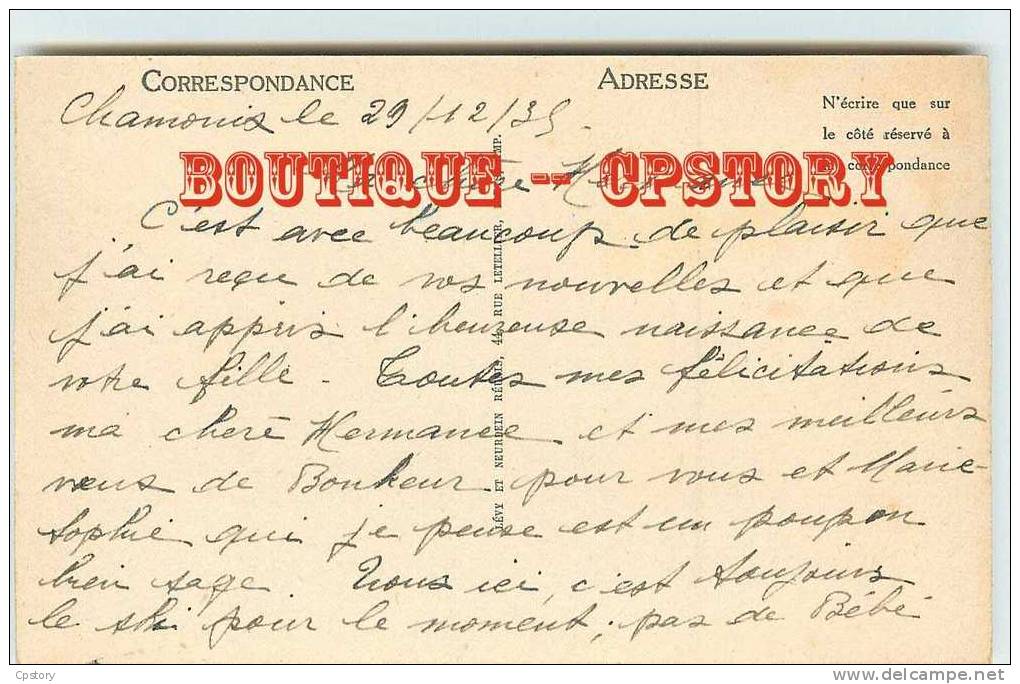 CORRESPONDANCE
ADRESSE
N'écrire que sur
le côté réservé à
correspondance
Chamonix le 29/12/35.
BOUTIQUE -- CPSTORY
C'est avec beaucoup de plaisir que
j'ai reçu de vos nouvelles et que
j'ai appris l'heureuse naissance de
votre fille - Toutes mes félicitations
ma chère Hermance et mes meilleurs
vœus de Bonheur pour vous et Marie-
Sophie qui je pense est un poupon
bien sage Nous ici, c'est toujours
le ski pour le moment, pas de Bébé
LÉVY ET NEURDEIN RÉUNIS, 44, RUE LETELLIER, IMP.
Cpstory
delcampe.net